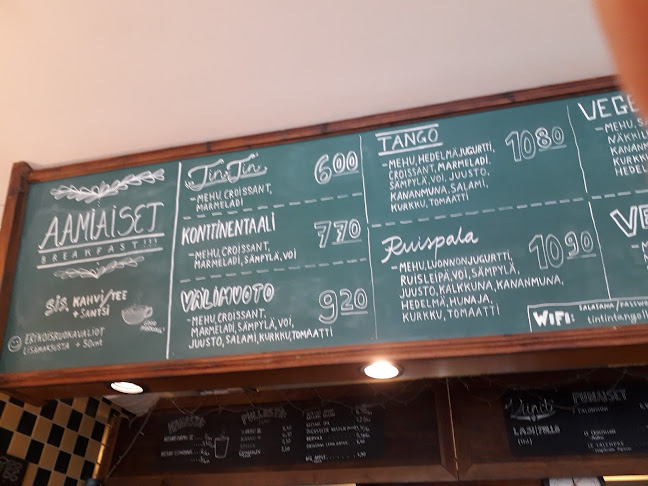 AAMIAISET
BREAKFAST!!!
SIS. KAHVI/TEE
+ SANTSI
GOOD MORNING!
ERIKOISRUOKAVALIOT
LISÄMAKSUSTA + 50cnt
TinTin 600
- MEHU, CROISSANT,
MARMELADI
KONTTINENTAALI 770
- MEHU, CROISSANT,
MARMELADI, SÄMPYLÄ, VOI
VÄLIMUOTO 920
- MEHU, CROISSANT,
MARMELADI, SÄMPYLÄ, VOI,
JUUSTO, SALAMI, KURKKU, TOMAATTI
TANGO 1080
- MEHU, HEDELMÄJUGURTTI,
CROISSANT, MARMELADI,
SÄMPYLÄ, VOI, JUUSTO,
KANANMUNA, SALAMI,
KURKKU, TOMAATTI
Ruispala 1090
- MEHU, LUONNONJUGURTTI,
RUISLEIPÄ, VOI, SÄMPYLÄ,
JUUSTO, KALKKUNA, KANANMUNA,
HEDELMÄ, HUNAJA,
KURKKU, TOMAATTI
VEGE
- MEHU, S
NÄKKIL
KANANM
KURKK
HEDEL
VE
- M
WIFI:
SALASANA / PASSWO
tintintangol
PULLOSTA
PUNAISET
LASI PULLO